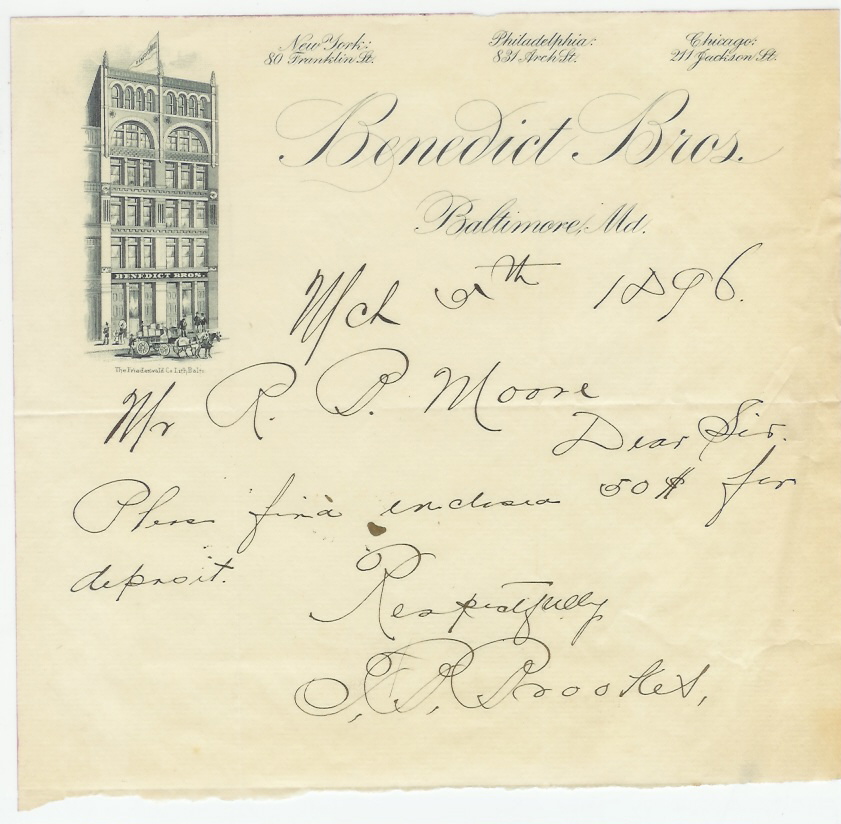 New York:
80 Franklin St.
Philadelphia:
831 Arch St.
Chicago:
211 Jackson St.
Benedict Bros.
Baltimore, Md.
BENEDICT BROS.
The Friedenwald Co. Lith. Balto.
Mch 5th 1896.
Mr R. B. Moore
Dear Sir.
Pleas find enclosed 50$ for
deposit.
Respectfully